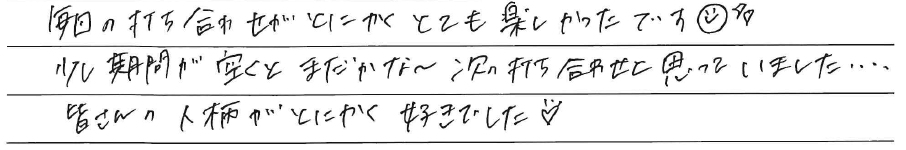 毎回の打ち合わせがとにかくとても楽しかったです☺
少し期間が空くとまだかな〜次の打ち合わせと思っていました....
皆さんの人柄がとにかく好きでした♡